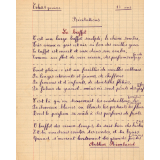 Récitation
Le buffet
C'est un large buffet sculpté, le chêne sombre,
Très vieux a pris cet air si bon des vieilles gens
Le buffet est ouvert, et verse dans son ombre
Comme un flot de vin vieux, des parfums engageants
Tout plein, c'est un fouillis de vieilles vieilleries
De linges odorants et jaunes, de chiffons
De femmes ou d'enfants, de dentelles flétries
De fichus de grand'mère où sont peints des griffons
C'est là qu'on trouverait les médaillons, les mèches
De cheveux blancs ou blonds, les portraits, les fleurs sèches
Dont le parfum se mêle à des parfums de fruits
O buffet du vieux temps tu sais bien des histoires
Et tu voudrais conter tes contes, et tu bruis
Quand s'ouvrent lentement tes grandes portes noires
Arthur Rimbaud